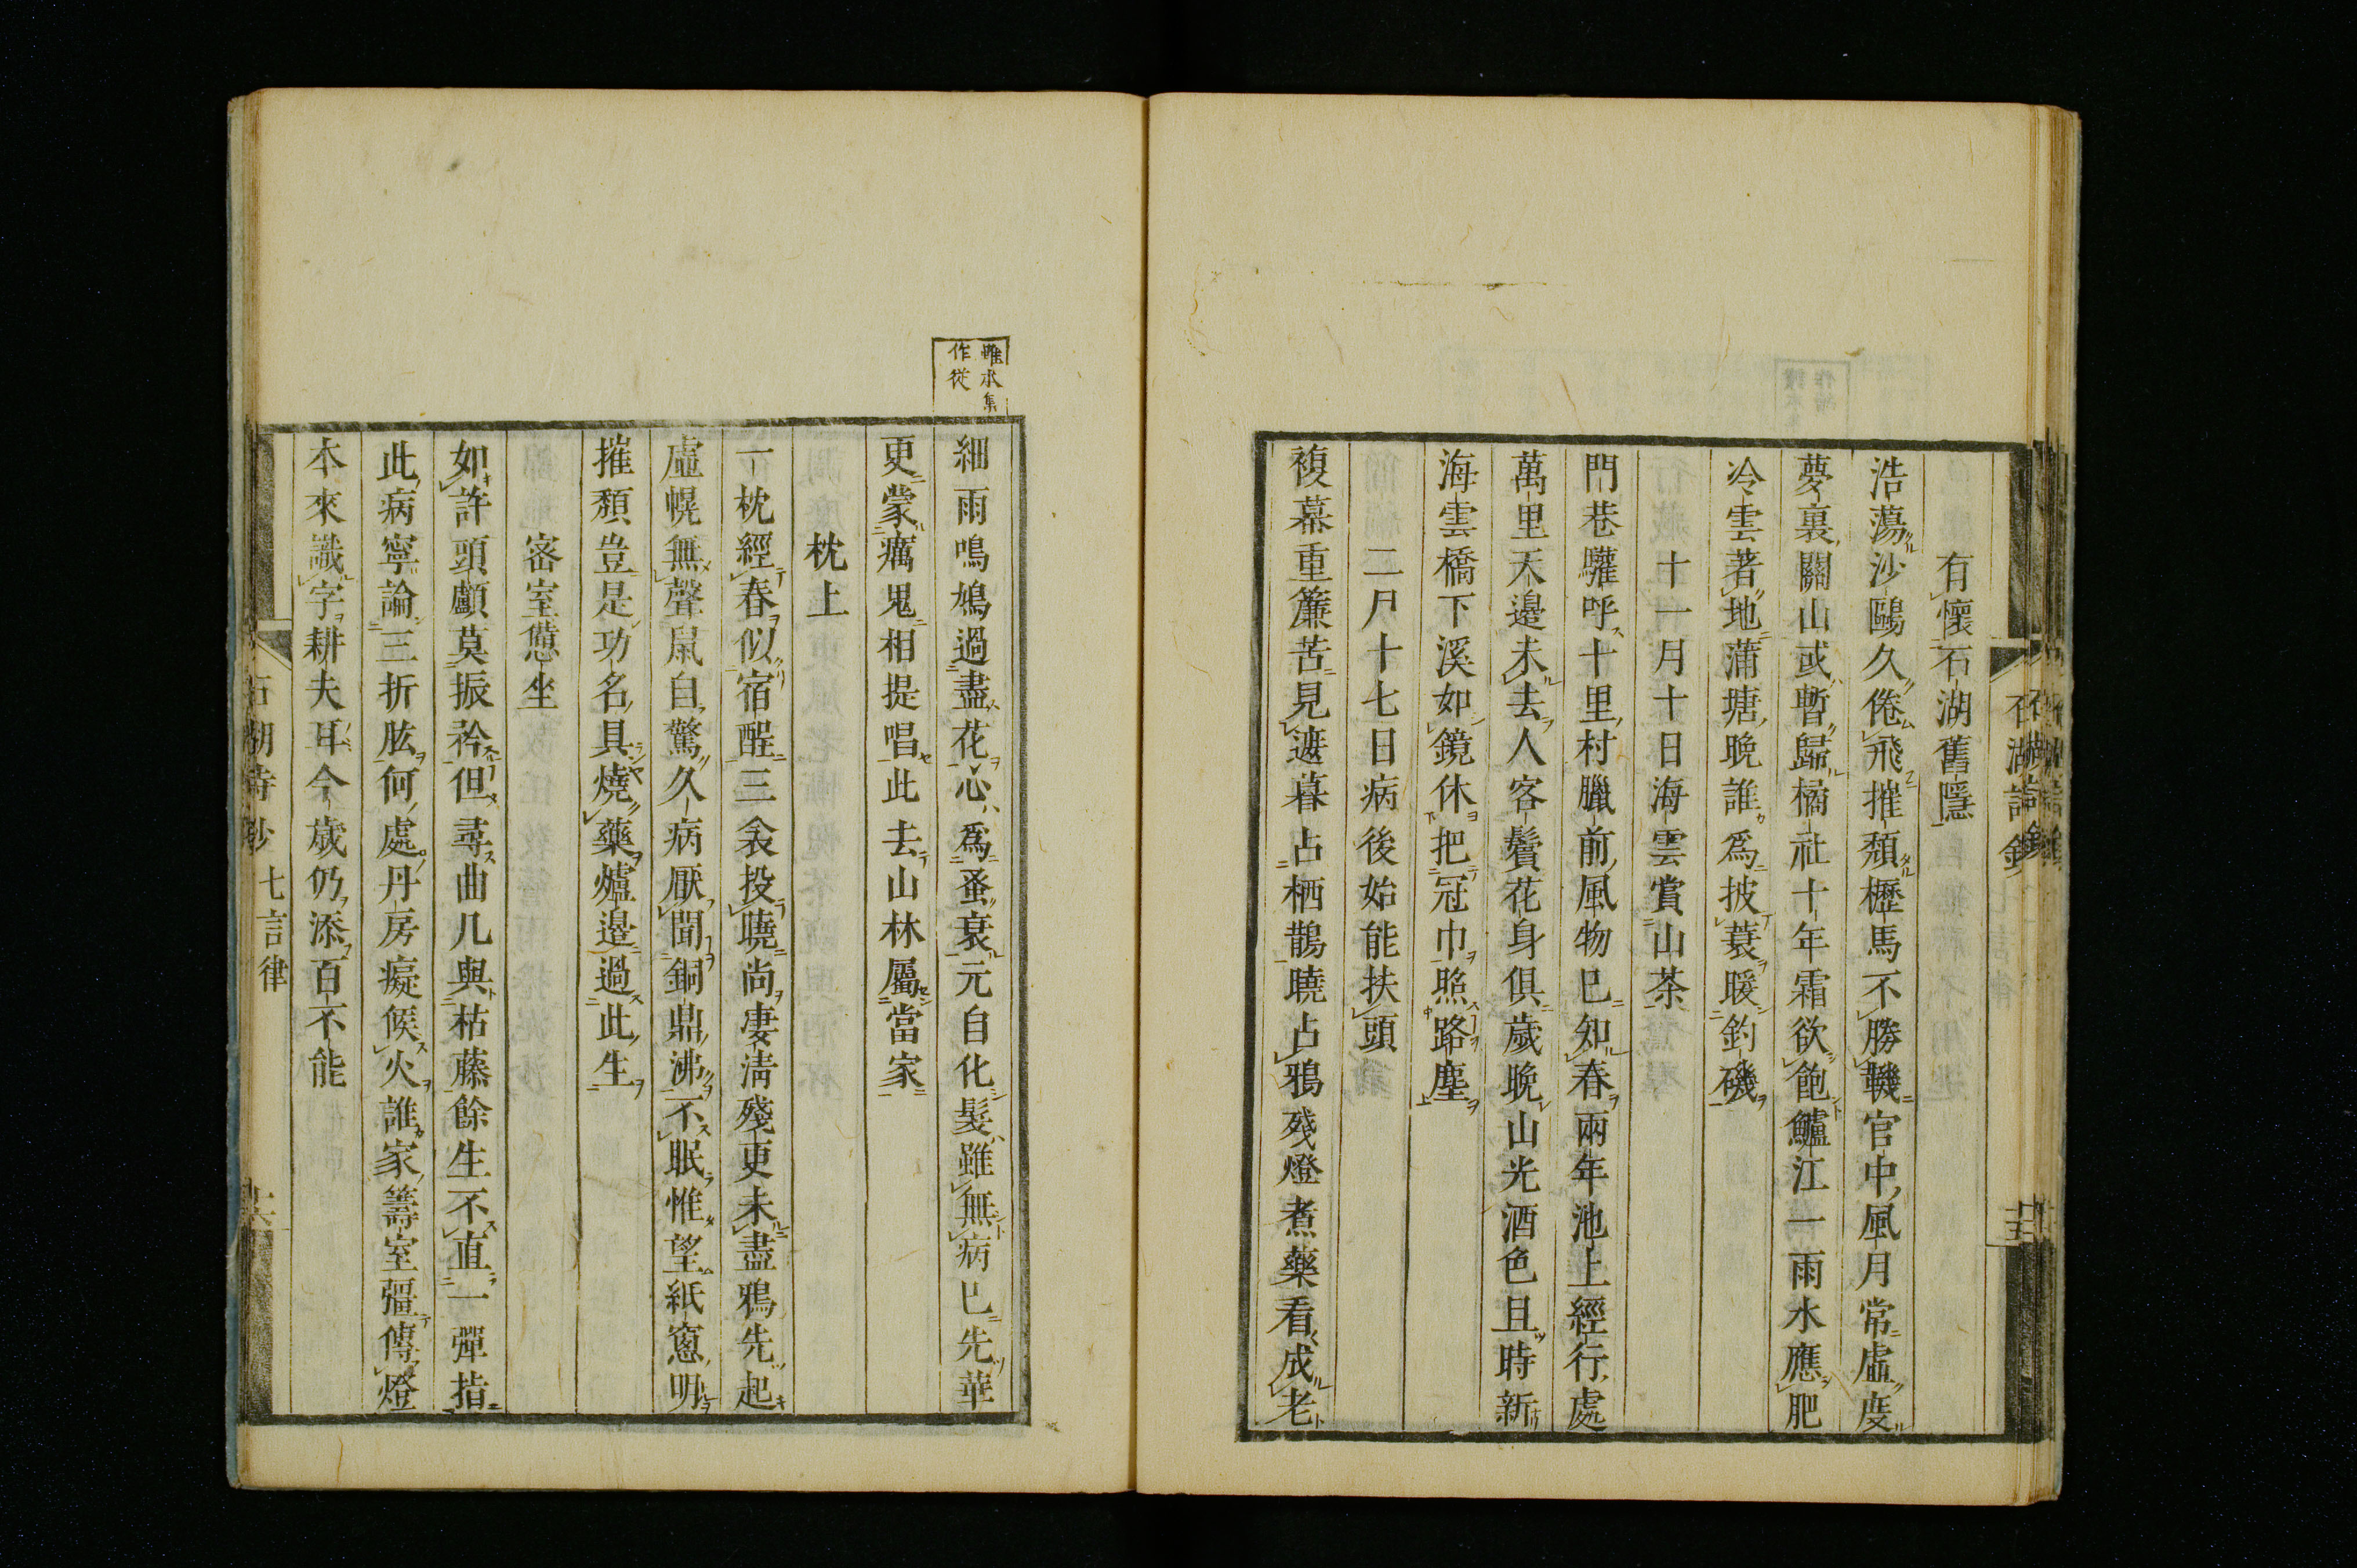 石湖詩鈔
十五
有懷石湖舊隱
浩蕩沙鷗久倦飛摧頹櫪馬不勝鞿官中風月常虛度
夢裏關山或暫歸橘社十年霜欲飽鱸江一雨水應肥
冷雲著地蒲塘晚誰爲披蓑暖釣磯
十一月十日海雲賞山茶
門巷驩呼十里村臘前風物已知春兩年池上經行處
萬里天邊未去人客鬢花身俱歲晚山光酒色且時新
海雲橋下溪如鏡休把冠巾照路塵
二月十七日病後始能扶頭
複幕重簾苦見遮暮占栖鵲曉占鴉殘燈煮藥看成老
雖本集
作從
細雨鳴鳩過盡花心爲蚤衰元自化髮雖無病已先華
更蒙癘鬼相提唱此去山林屬當家
枕上
一枕經春似宿酲三衾投曉尚凄淸殘更未盡鴉先起
虛幌無聲鼠自驚久病厭聞銅鼎沸不眠惟望紙窻明
摧頹豈是功名具燒藥爐邊過此生
密室憊坐
如許頭顱莫振矜但尋曲几與枯藤餘生不直一彈指
此病寧論三折肱何處丹房癡候火誰家籌室彊傳燈
本來識字耕夫耳今歲仍添百不能
石湖詩鈔 七言律
十六